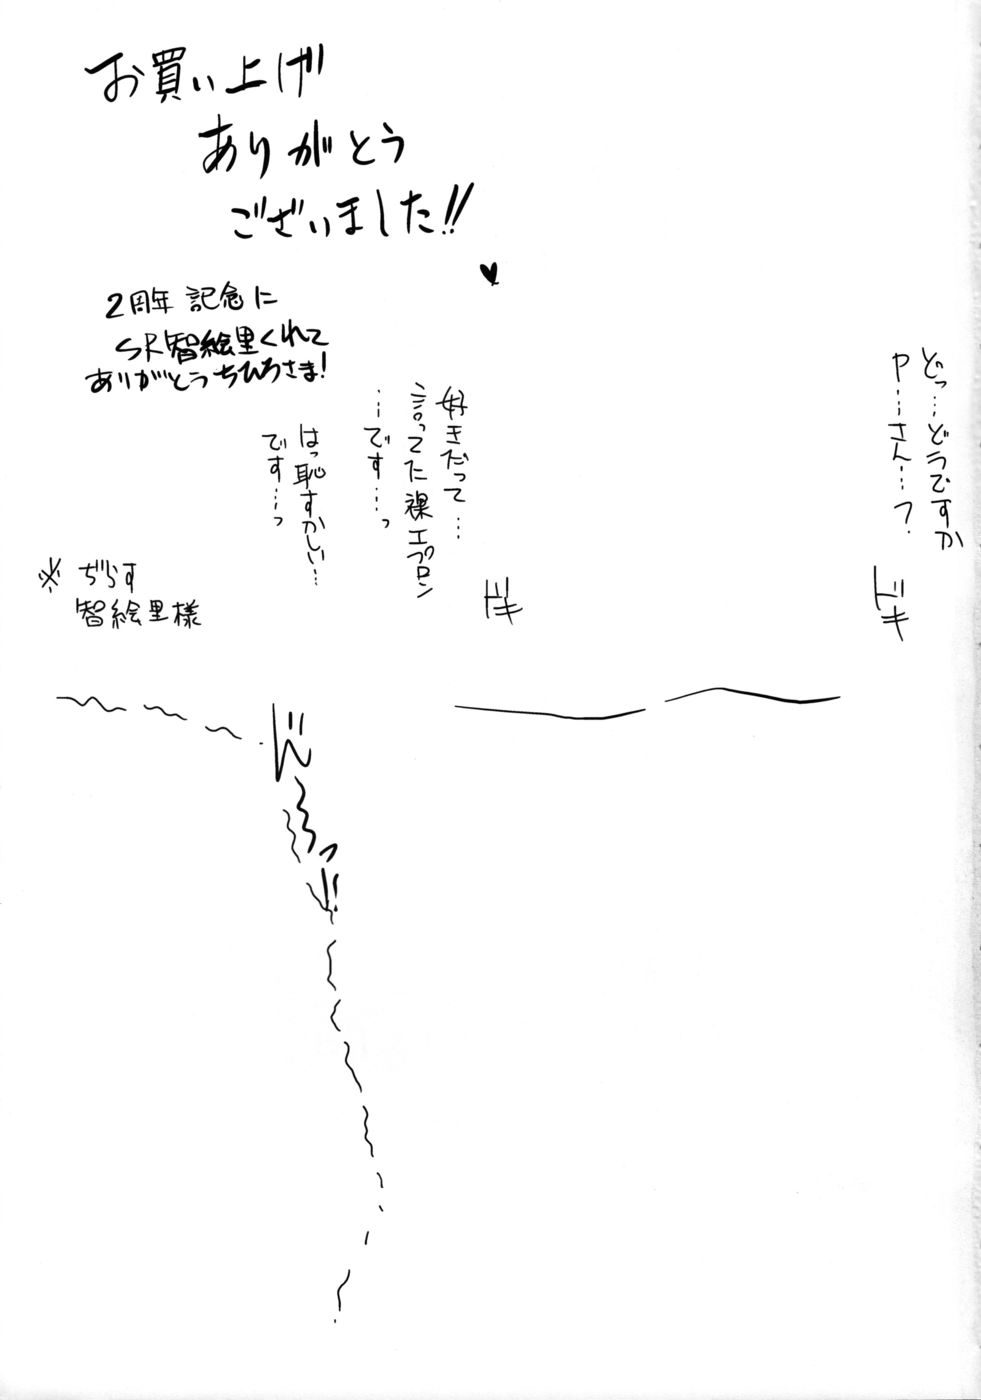 お買い上げ
ありがとう
ございました!!
♥
2周年 記念に
SR智絵里くれて
ありがとうちひろさま!
どっ…どうですか
P……さん……?
ドキ
好きだって…
言ってた裸エプロン
……です……っ
はっ恥ずかしい…
です……っ
ドキ
※ ぢらす
智絵里様